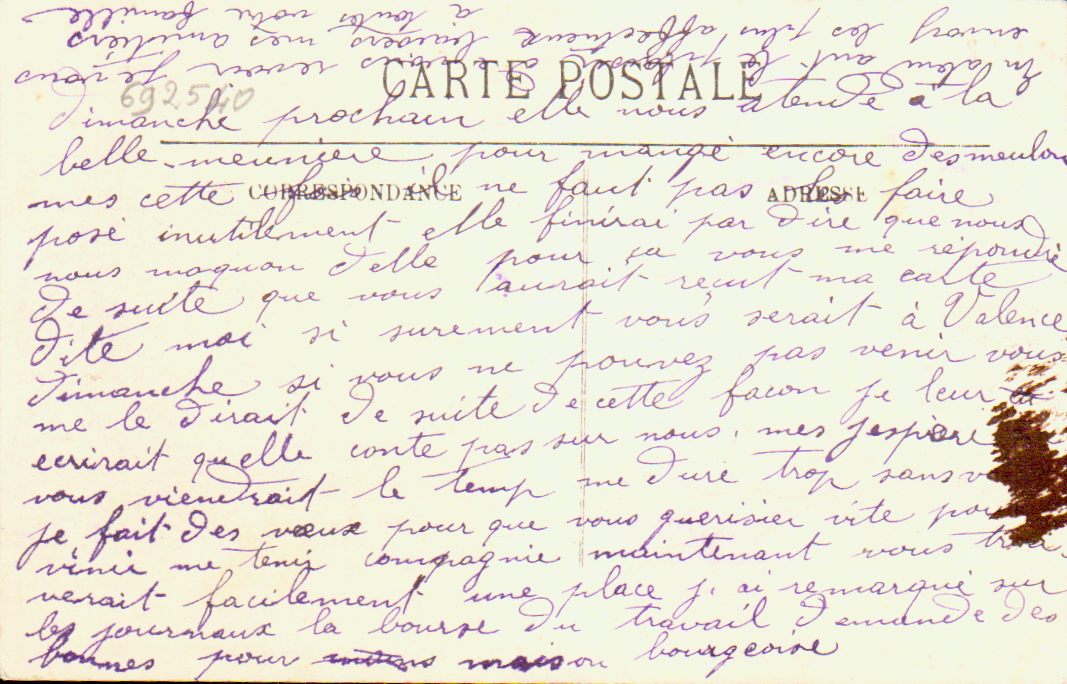 CARTE POSTALE
692540
dimanche prochain elle nous atende à la
belle meuniere pour mangé encore des meulon
CORRESPONDANCE
ADRESSE
mes cette fois il ne faut pas les faire
posé inutilement elle finirai par dire que nous
nous moquon d'elle pour sa vous me répondré
de suite que vous aurait reçut ma carte
dite moi si surement vous serait à Valence
dimanche si vous ne pouvez pas venir vous
me le dirait de suite de cette façon je leur
ecrirait quelle conte pas sur nous. mes j'espère
vous viendrait le temp me dure trop sans
je fait des vœux pour que vous guerisier vite
vénir me tenir compagnie maintenant vous trou-
verait facilement une place j'ai remarqué sur
les journaux la bourse du travail demande des
bonnes pour maison bourgeoise
En atendant le plaisir de vous revoir je vous
envoy les plus affectueux baisers mes amitiers
à toutes votre famille